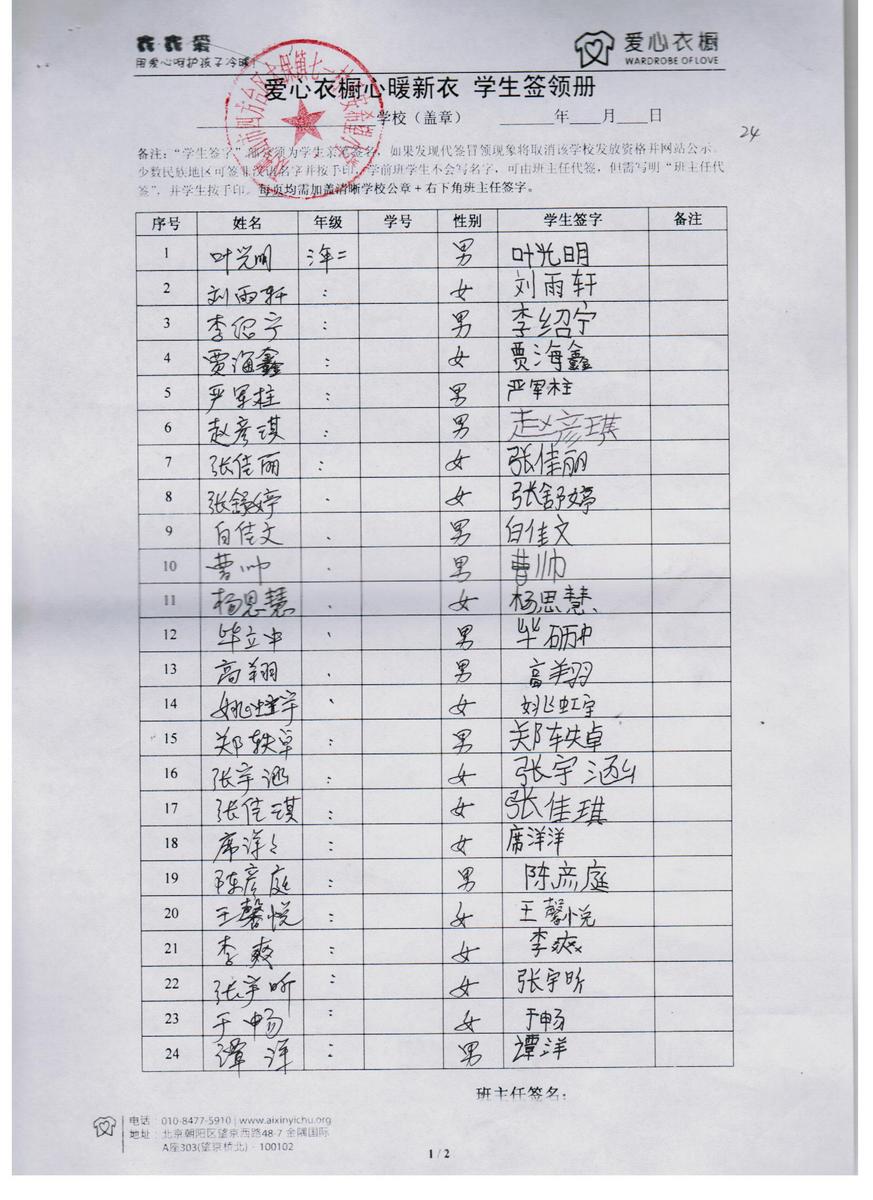 鑫鑫爱
用爱心呵护孩子冷暖!
爱心衣橱
WARDROBE OF LOVE
爱心衣橱心暖新衣 学生签领册
学校（盖章） 年 月 日
24
备注：“学生签字”部分须为学生亲笔签名，如果发现代签冒领现象将取消该学校发放资格并网站公示。
少数民族地区可签非汉语名字并按手印，学前班学生不会写名字，可由班主任代签，但需写明“班主任代
签”，并学生按手印。每页均需加盖清晰学校公章+右下角班主任签字。
序号 姓名 年级 学号 性别 学生签字 备注
1 叶光明 三年二 男 叶光明
2 刘雨轩 : 女 刘雨轩
3 李绍宁 : 男 李绍宁
4 贾海鑫 : 女 贾海鑫
5 严军柱 : 男 严军柱
6 赵彦琪 : 男 赵彦琪
7 张佳丽 : 女 张佳丽
8 张舒婷 . 女 张舒婷
9 白佳文 . 男 白佳文
10 曹帅 . 男 曹帅
11 杨思慧 . 女 杨思慧
12 毕立中 . 男 毕
13 高翔 . 男 高翔
14 姚虹宇 . 女 姚虹宇
15 郑轶卓 : 男 郑轶卓
16 张宇涵 : 女 张宇涵
17 张佳琪 : 女 张佳琪
18 席洋々 : 女 席洋洋
19 陈彦庭 : 男 陈彦庭
20 王馨悦 : 女 王馨悦
21 李爽 : 女 李爽
22 张宇昕 : 女 张宇昕
23 于畅 : 女 于畅
24 谭洋 : 男 谭洋
班主任签名：
电话 010-8477-5910 | www.aixinyichu.org
地址： 北京朝阳区望京西路48-7 金隅国际
A座303(望京桥北) · 100102
1 / 2